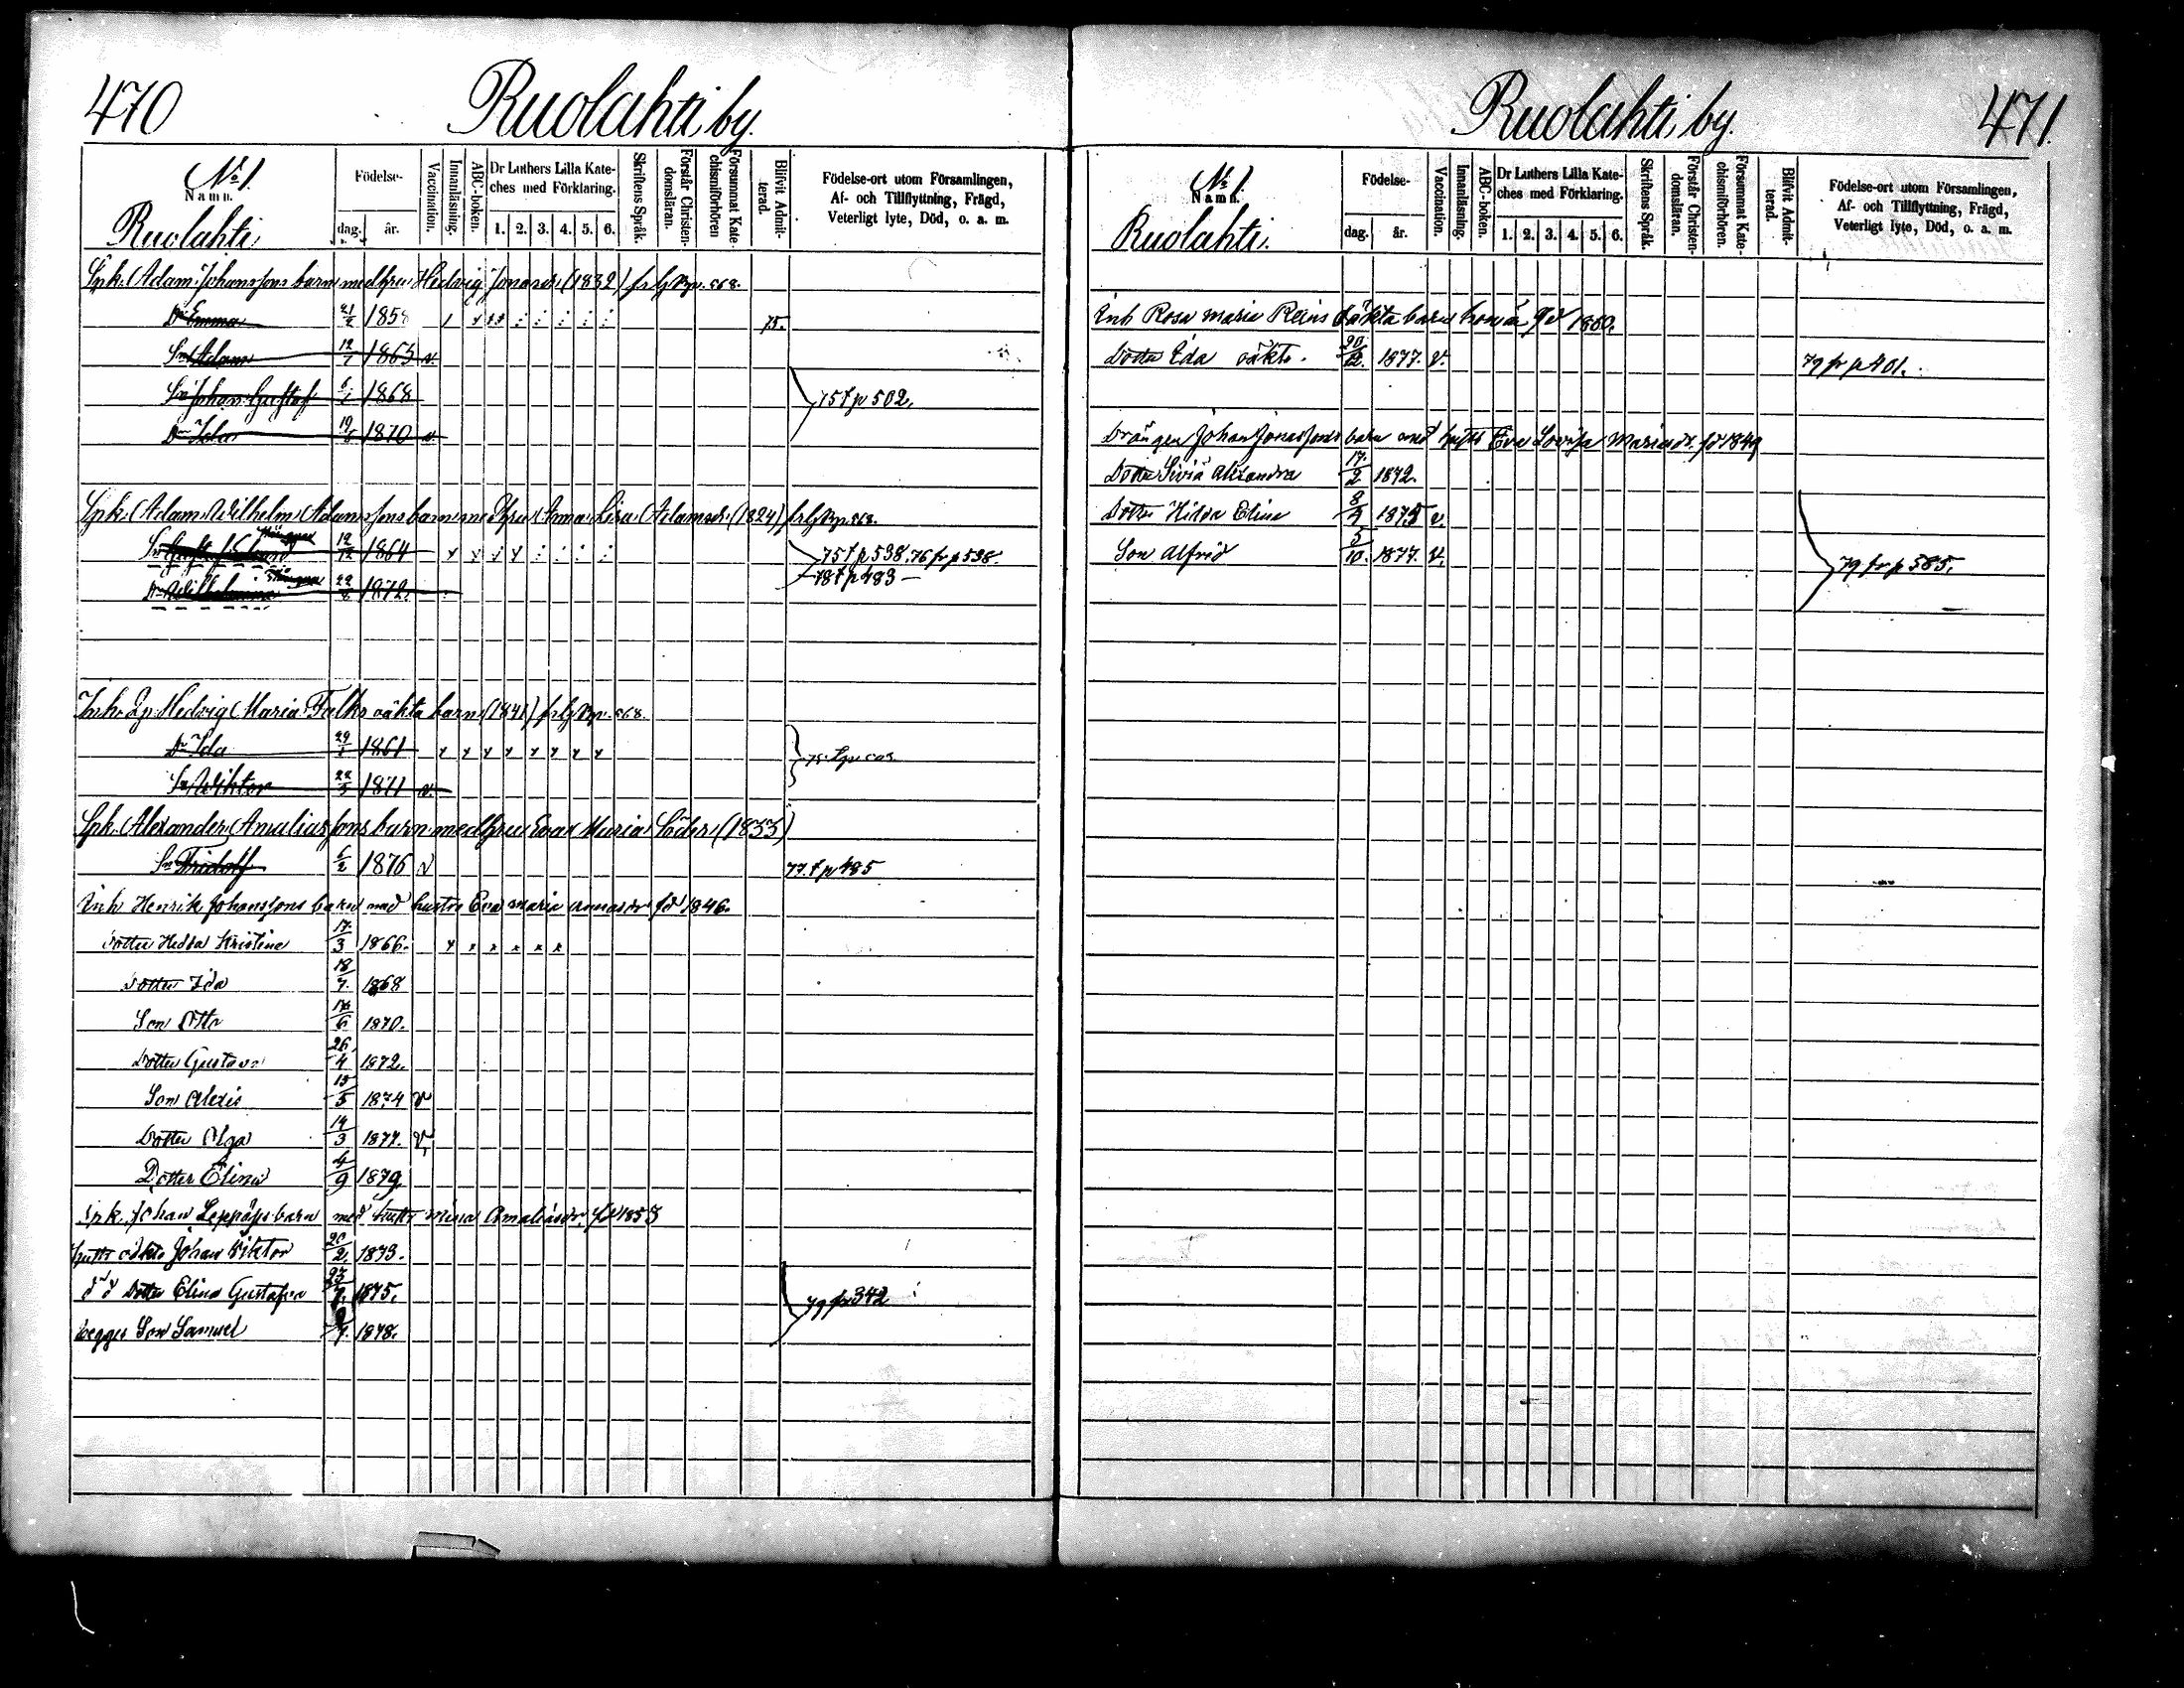 470
Ruolahti by.
No 1.
Namn.
Ruolahti
Födelse-
dag.
år.
Vaccination.
Innanläsning.
ABC-boken.
Dr Luthers Lilla Kate-
ches med Förklaring.
1. 2. 3. 4. 5. 6.
Skriftens Språk.
Förstår Christen-
domsläran.
Försummat Kate-
chismiförhören
Blifvit Admit-
terad.
Födelse-ort utom Församlingen,
Af- och Tillflyttning, Frägd,
Veterligt lyte, Död, o. a. m.
Spk. Adam Johanssons barn med hru Hedvig Jonasdr (1832)
Dr Emma 21/2 1858 75.
Sn Adam 12/7 1863 v.
Sn Johan Gustaf 1868
Dr Ida 1870 v. 75 t p 502.
Spk. Adam Wilhelm Adamssons barn med hru Anna Lisa Adamsdr (1824)
Sn 12/12 1864 75 t p 538. 76 fr p 538.
Dr Wilhelmina 1872. 78 t p 483
Inh. Hedvig Maria Falks oäkta barn (1841)
Dr Ida 1861 x x x x x x x x
Sn Wiktor 1871 v.
Spk. Alexander Amaliassons barn med hru Eva Maria (1855)
Sn Fridolf 6/2 1876 v 77. t p 485
Inh Henrik Johanssons barn med hustru Eva Maria Annasdr fd 1846.
Dotter Hedda Kristina 17/3 1866. x x x x x x
Dotter Ida 18/7 1868
Son Otto 16/6 1870.
Dotter Gustava 26/4 1872.
Son Alexis 15/5 1874 v
Dotter Olga 14/3 1877. v,
Dotter Elina 4/9 1879
Spk. Johan Leppäs barn med hustr Miina Amaliasdr fd 1853
hustr oäkta Johan Viktor 20/2 1873.
d'd Dotter Elina Gustafva 23/7. 1875.
begges Son Samuel 1878. 79 fr 342
471.
Ruolahti by.
No 1.
Namn.
Ruolahti.
Födelse-
dag.
år.
Vaccination.
Innanläsning.
ABC-boken.
Dr Luthers Lilla Kate-
ches med Förklaring.
1. 2. 3. 4. 5. 6.
Skriftens Språk.
Förstår Christen-
domsläran.
Försummat Kate-
chismiförhören.
Blifvit Admit-
terad.
Födelse-ort utom Församlingen,
Af- och Tillflyttning, Frägd,
Veterligt lyte, Död, o. a. m.
Inh Rosa Maria Reins oäkta barn hon är fd 1850.
Dotter Ida oäkta. 20/2. 1877. v. 79 fr p 401.
Drängen Johan Jonassons barn med hustr Eva Lovisa Mariasdr. fd 1849
Dotter Sivia Alexandra 17/2 1872.
Dotter Hilda Elina 1875 v.
Son Alfrid 5/10. 1877. v. 79 fr p 585.